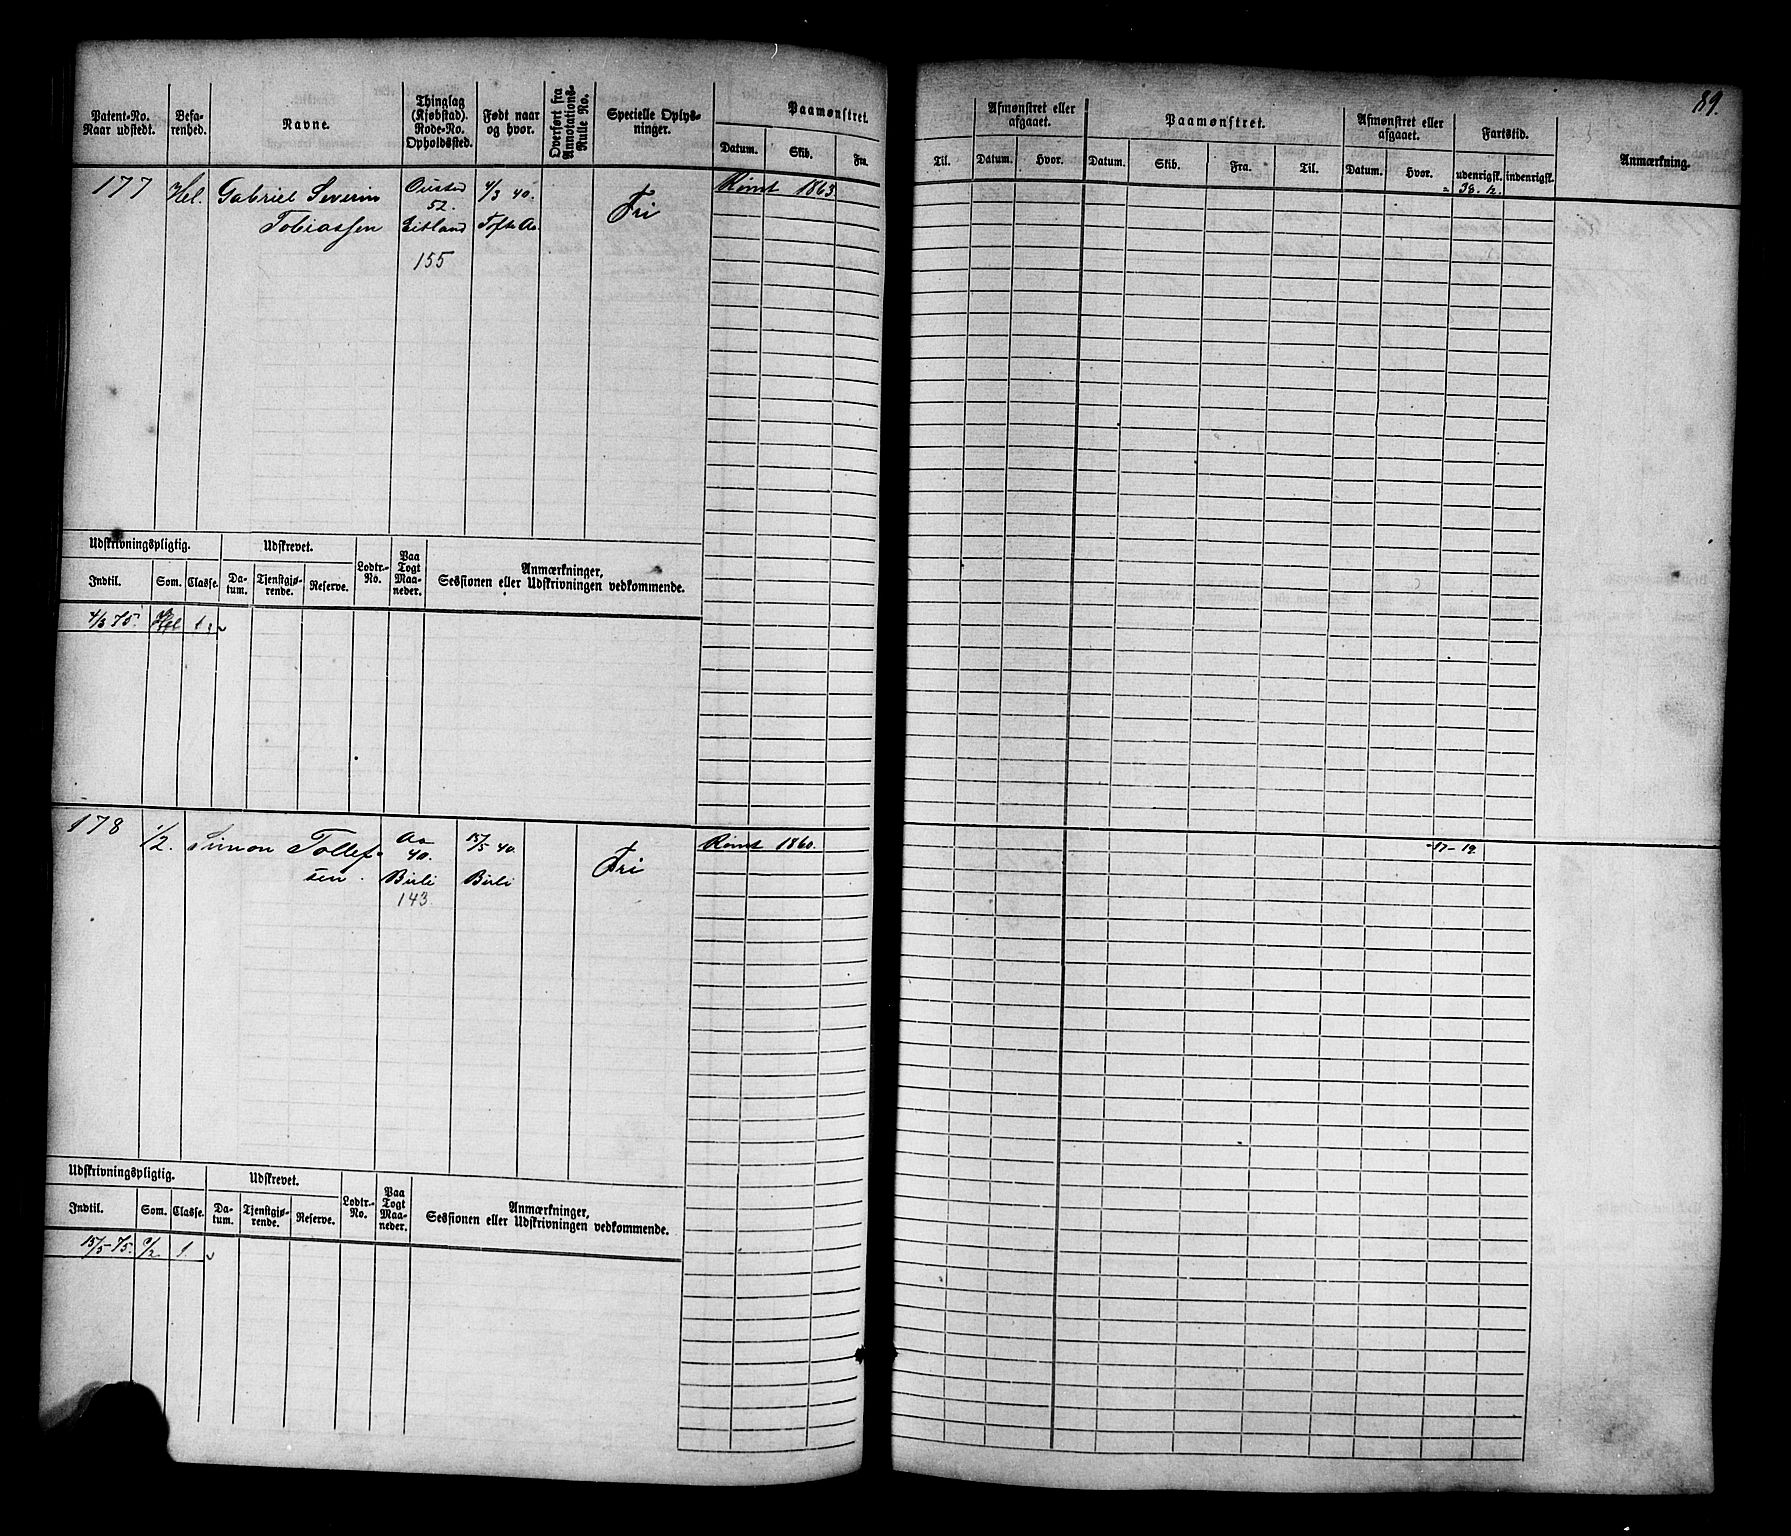 89.
Patent-No.
Naar udstedt.
Befa-
renhed.
Navne.
Thinglag
(Kjøbstad).
Rode-No.
Opholdssted.
Født naar
og hvor.
Overført fra
Annotations-
Rulle No.
Specielle Oplys-
ninger.
Paamønstret.
Datum.
Skib.
Fra.
Til.
Afmønstret eller
afgaaet.
Datum.
Hvor.
Paamønstret.
Datum.
Skib.
Fra.
Til.
Afmønstret eller
afgaaet.
Datum.
Hvor.
Fartstid.
udenrigsk.
indenrigsk.
Anmærkning.
177
Hel.
Gabriel Severin
Tobiassen
52.
Eitland
155
4/3 40.
Fri
Rømt 1863.
38. 12.
Udskrivningspligtig.
Udskrevet.
Indtil.
Som.
Classe.
Da-
tum.
Tjenstgjø-
rende.
Reserve.
Lodtr.-
No.
Paa
Togt
Maa-
neder.
Anmærkninger,
Sessionen eller Udskrivningen vedkommende.
4/3 75.
Hel
1.
178
1/2.
Simon Tollef-
sen.
Aa
40.
Birli
143
15/5 40.
Birli
Fri
Rømt 1860.
-17- 19.
Udskrivningspligtig.
Udskrevet.
Indtil.
Som.
Classe.
Da-
tum.
Tjenstgjø-
rende.
Reserve.
Lodtr.-
No.
Paa
Togt
Maa-
neder.
Anmærkninger,
Sessionen eller Udskrivningen vedkommende.
15/5-75.
1/2
1.